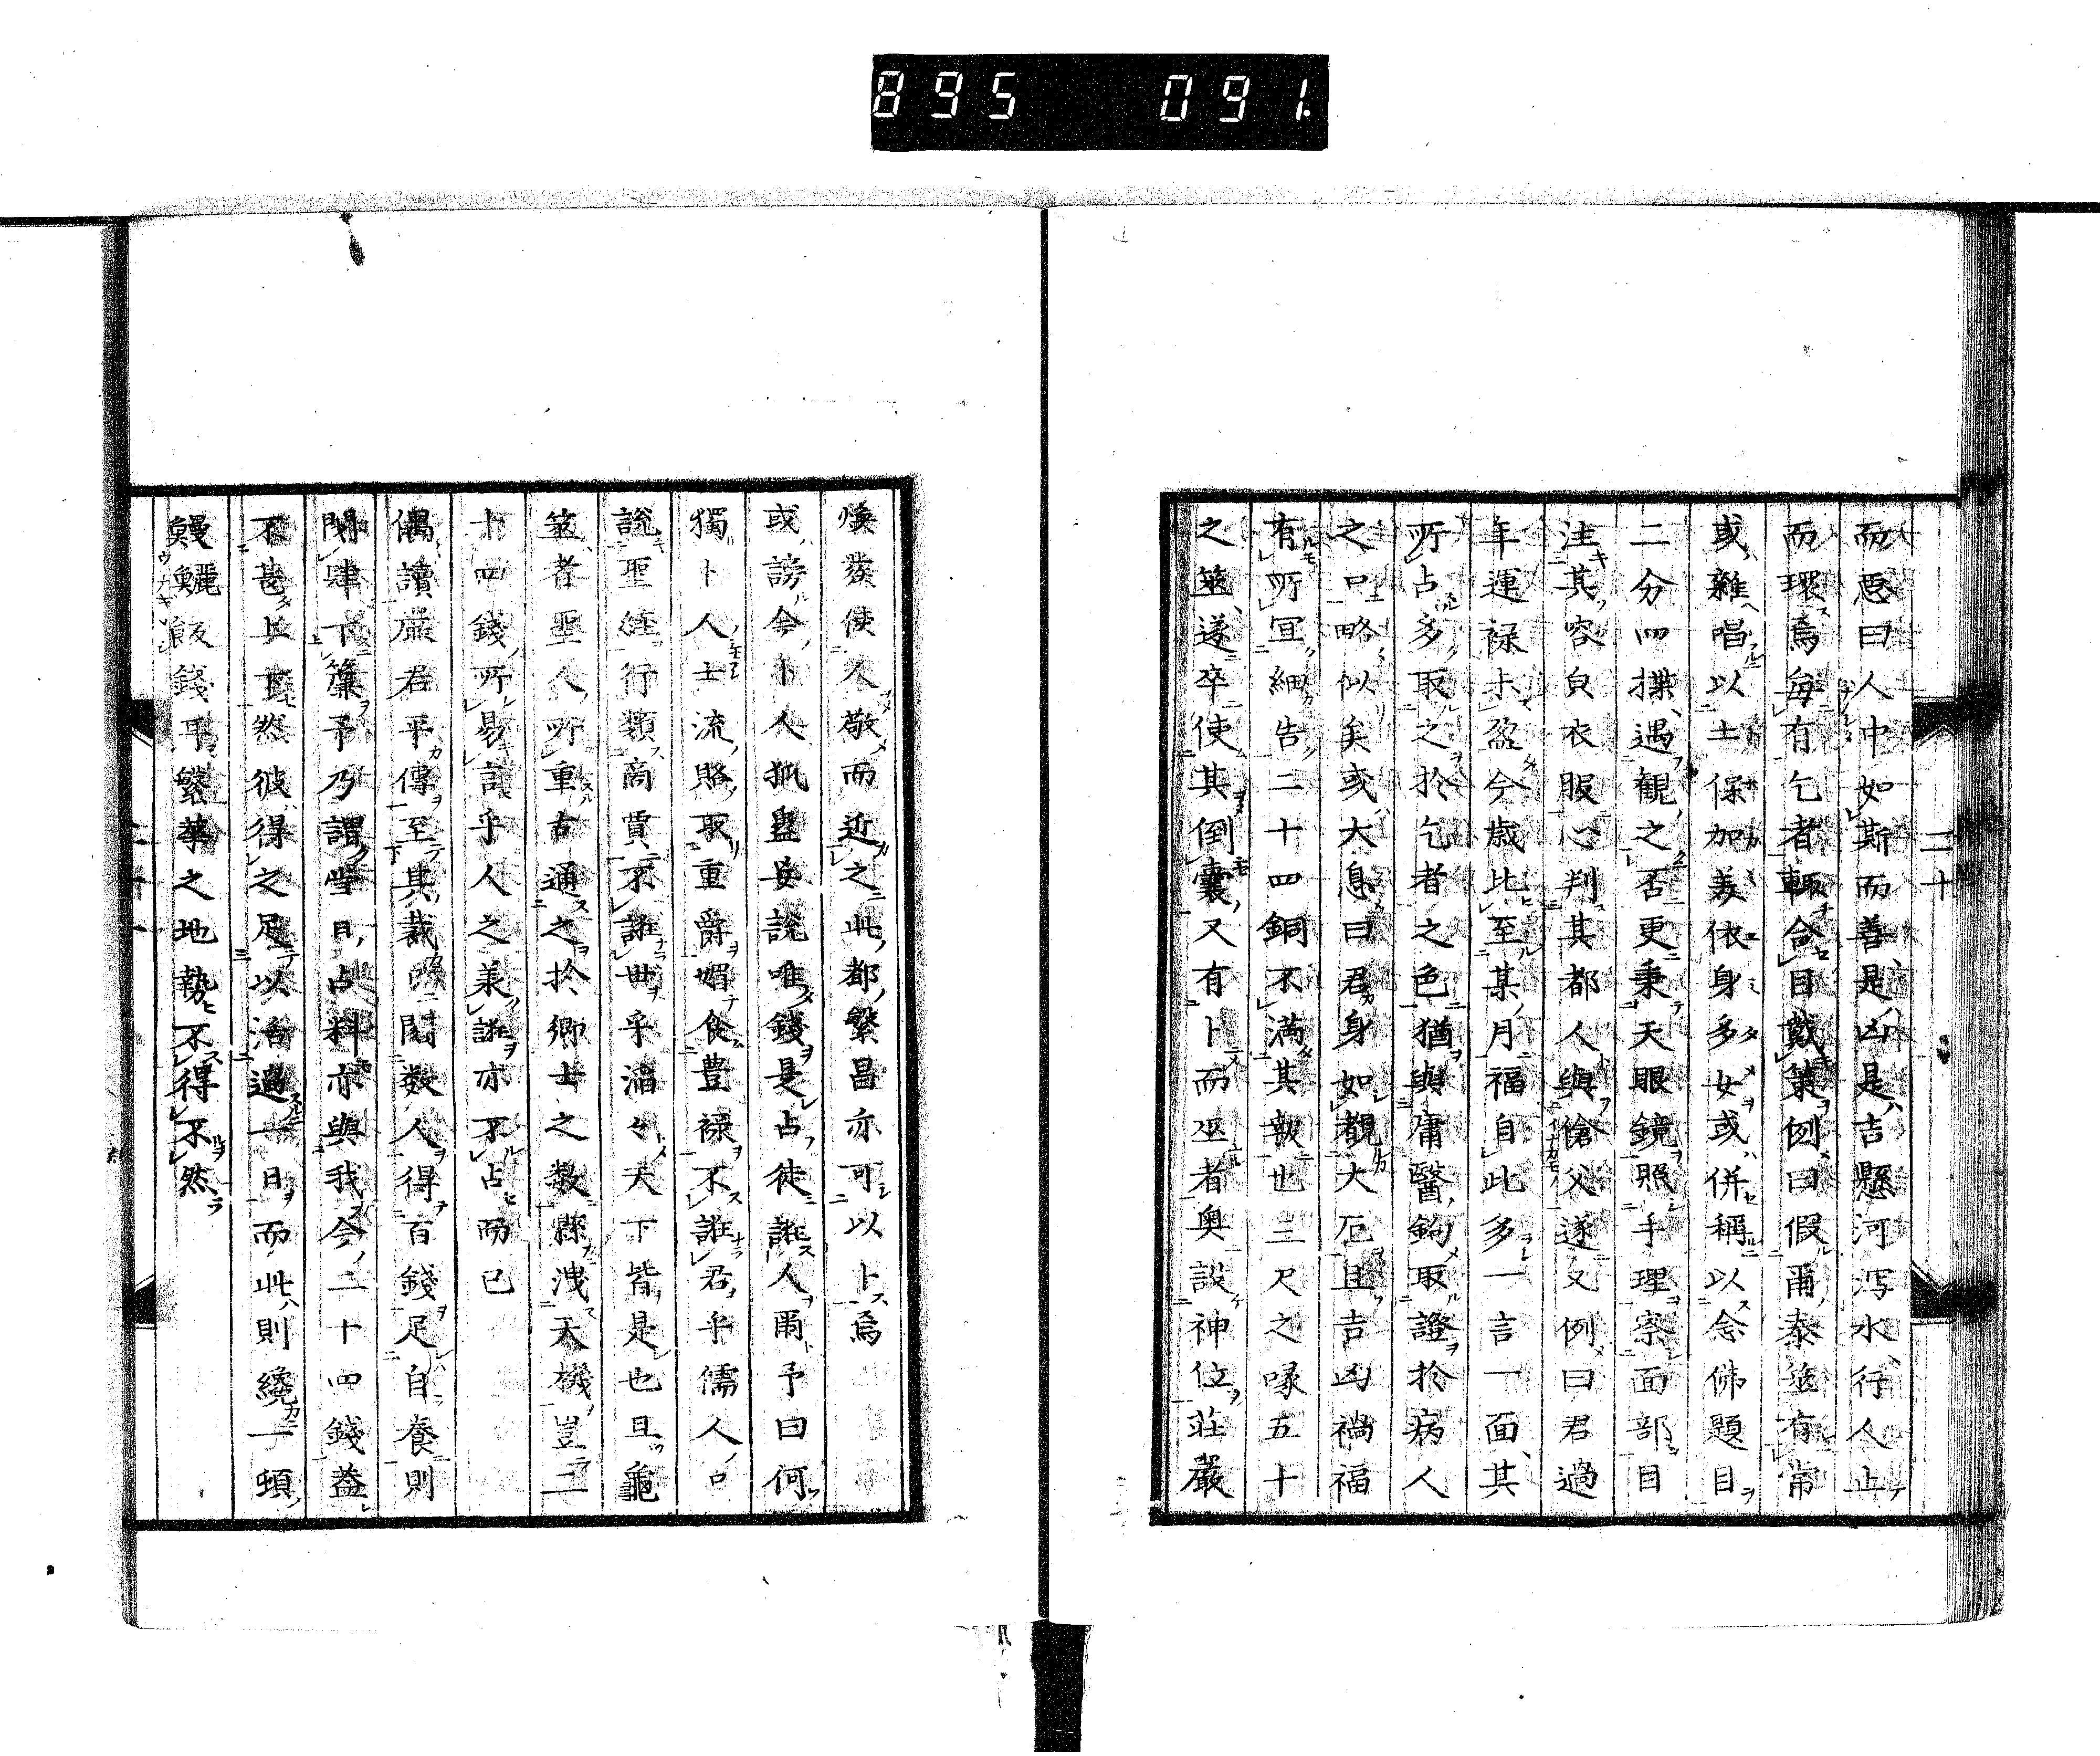 895 091
二十
而惡曰人中如斯而善是凶是吉懸河瀉水行人止
而環焉毎有乞者輒合目戴策例曰假爾泰筮有常
或雜唱以土保加美依身多女或併稱以念佛題目
二分四揲遇觀之否更秉天眼鏡照手理察面部目
注其容貟衣服心判其都人與傖父遂又例曰君過
年運禄未盈今歳比至某月福自此多一言一面其
所占多取之於乞者之色猶與庸醫鉤取證於病人
之口略似矣或大息曰君身如觀大厄且吉凶禍福
有所冝細告二十四銅不満其報也三尺之喙五十
之筮遂卒使其倒嚢又有卜而巫者奥設神位莊嚴
煥發使人敬而近之此都繁昌亦可以卜焉
或謗今卜人狐蠱妄説唯錢是占徒誑人爾予曰何
獨卜人士流賂取重爵媚食豊禄不誑君乎儒人口
説聖經行類商賈不誑世乎滔々天下皆是也且龜
策者聖人所重古通之於卿士之数縣洩天機豈二
十四錢所易言乎人之来誑亦不占而已
偶讀嚴君平傳至其裁日閲数人得百錢足自養則
閉肆下簾予乃謂當日占料亦與我今二十四錢益
不甚上下然彼得之足以活過一日而此則纔一頓
鰻鱺飯錢耳繁華之地勢不得不然
二十一